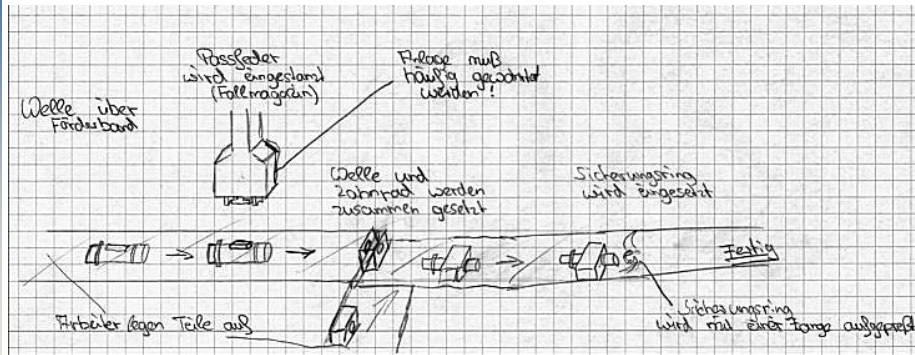 Welle über
Förderband
Passfeder
wird eingestanzt
(Fallmagazin)
Anlage muß
häufig gewartet
werden!
Welle und
Zahnrad werden
zusammen gesetzt
Sicherungsring
wird eingesetzt
Fertig
Arbeiter legen Teile auf
Sicherungsring
wird mit einer Zange aufgepreßt